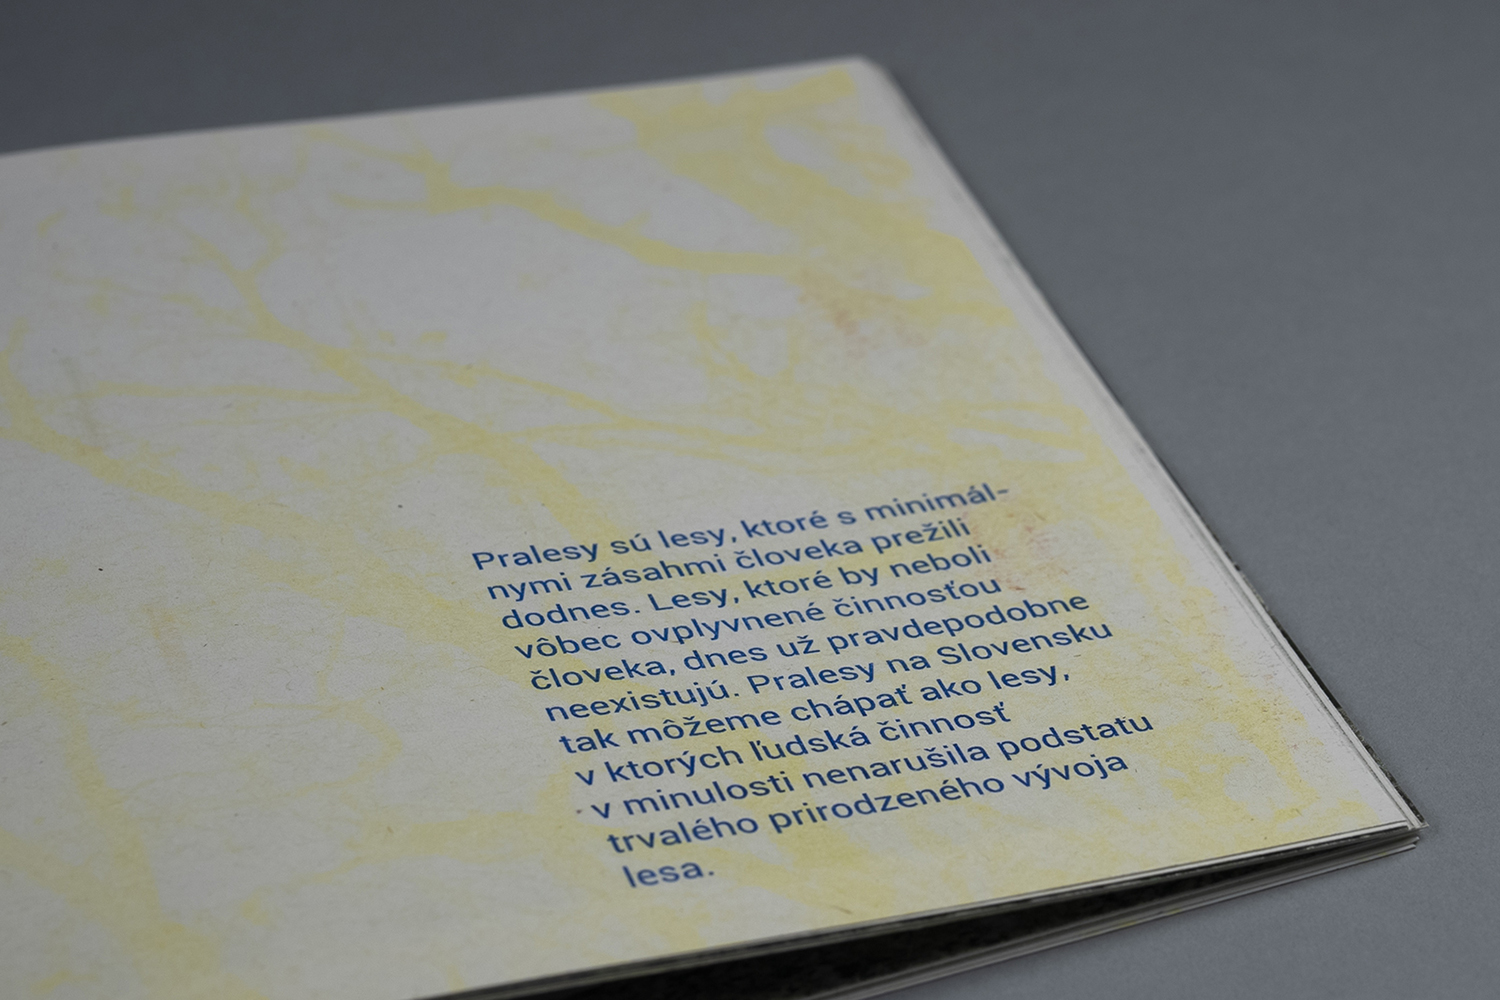 Pralesy sú lesy, ktoré s minimál-
nymi zásahmi človeka prežili
dodnes. Lesy, ktoré by neboli
vôbec ovplyvnené činnosťou
človeka, dnes už pravdepodobne
neexistujú. Pralesy na Slovensku
tak môžeme chápať ako lesy,
v ktorých ľudská činnosť
v minulosti nenarušila podstatu
trvalého prirodzeného vývoja
lesa.